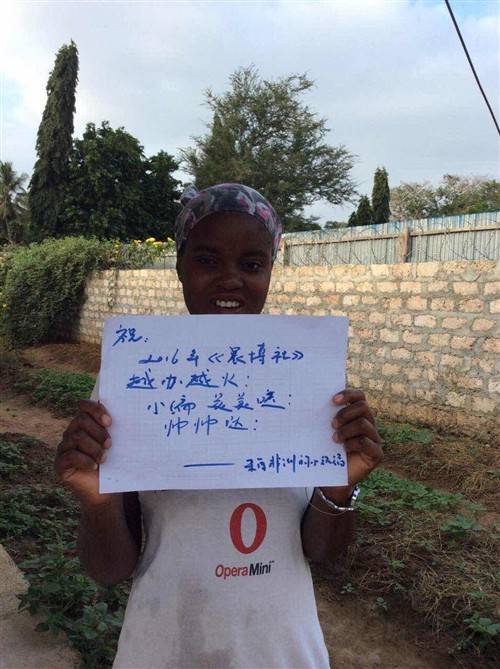 祝:
2016年《展博社》
越办越火:
小编美美哒:
帅帅哒:
——来自非洲的小祝福
Opera Mini